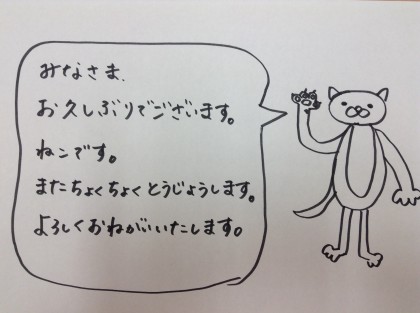 みなさま、
お久しぶりでございます。
ねこです。
またちょくちょくとうじょうします。
よろしくおねがいいたします。